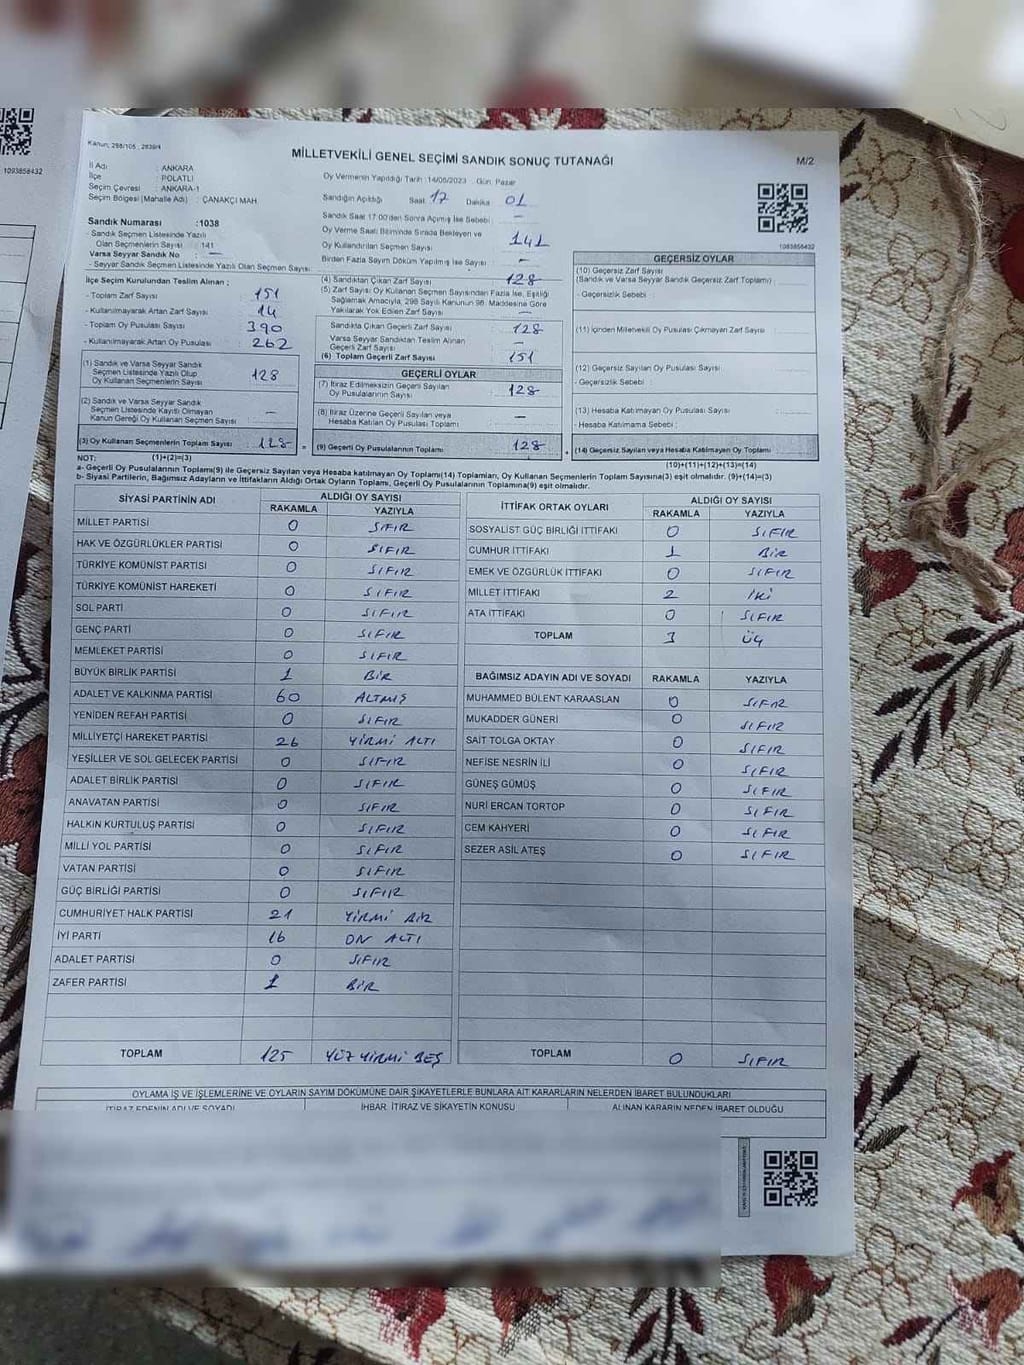 Kanun: 298/105 ; 2839/4
MİLLETVEKİLİ GENEL SEÇİMİ SANDIK SONUÇ TUTANAĞI
M/2
İl Adı : ANKARA
İlçe : POLATLI
Seçim Çevresi : ANKARA-1
Seçim Bölgesi (Mahalle Adı) : ÇANAKÇI MAH
Sandık Numarası : 1038
- Sandık Seçmen Listesinde Yazılı
Olan Seçmenlerin Sayısı : 141
Varsa Seyyar Sandık No : —
- Seyyar Sandık Seçmen Listesinde Yazılı Olan Seçmen Sayısı
Oy Vermenin Yapıldığı Tarih : 14/05/2023 Gün: Pazar
Sandığın Açıldığı Saat 17 Dakika 01
Sandık Saat 17:00'den Sonra Açılmış İse Sebebi : —
Oy Verme Saati Bitiminde Sırada Bekleyen ve
Oy Kullandırılan Seçmen Sayısı : 141
Birden Fazla Sayım Döküm Yapılmış İse Sayısı : —
1093858432
1093858432
İlçe Seçim Kurulundan Teslim Alınan ;
- Toplam Zarf Sayısı : 151
- Kullanılmayarak Artan Zarf Sayısı : 14
- Toplam Oy Pusulası Sayısı : 390
- Kullanılmayarak Artan Oy Pusulası : 262
(1) Sandık ve Varsa Seyyar Sandık
Seçmen Listesinde Yazılı Olup
Oy Kullanan Seçmenlerin Sayısı : 128
(2) Sandık ve Varsa Seyyar Sandık
Seçmen Listesinde Kayıtlı Olmayan
Kanun Gereği Oy Kullanan Seçmen Sayısı : —
(3) Oy Kullanan Seçmenlerin Toplam Sayısı : 128
(4) Sandıktan Çıkan Zarf Sayısı : 128
(5) Zarf Sayısı Oy Kullanan Seçmen Sayısından Fazla İse, Eşitliği
Sağlamak Amacıyla, 298 Sayılı Kanunun 98. Maddesine Göre
Yakılarak Yok Edilen Zarf Sayısı : —
Sandıkta Çıkan Geçerli Zarf Sayısı : 128
Varsa Seyyar Sandıktan Teslim Alınan
Geçerli Zarf Sayısı : —
(6) Toplam Geçerli Zarf Sayısı : 151
GEÇERLİ OYLAR
(7) İtiraz Edilmeksizin Geçerli Sayılan
Oy Pusulalarının Sayısı : 128
(8) İtiraz Üzerine Geçerli Sayılan veya
Hesaba Katılan Oy Pusulası Toplamı : —
= (9) Geçerli Oy Pusulalarının Toplamı : 128
GEÇERSİZ OYLAR
(10) Geçersiz Zarf Sayısı
(Sandık ve Varsa Seyyar Sandık Geçersiz Zarf Toplamı) :
- Geçersizlik Sebebi :
(11) İçinden Milletvekili Oy Pusulası Çıkmayan Zarf Sayısı :
(12) Geçersiz Sayılan Oy Pusulası Sayısı :
- Geçersizlik Sebebi :
(13) Hesaba Katılmayan Oy Pusulası Sayısı :
- Hesaba Katılmama Sebebi :
+ (14) Geçersiz Sayılan veya Hesaba Katılmayan Oy Toplamı :
NOT: (1)+(2)=(3)
(10)+(11)+(12)+(13)=(14)
a- Geçerli Oy Pusulalarının Toplamı(9) ile Geçersiz Sayılan veya Hesaba katılmayan Oy Toplamı(14) Toplamları, Oy Kullanan Seçmenlerin Toplam Sayısına(3) eşit olmalıdır. (9)+(14)=(3)
b- Siyasi Partilerin, Bağımsız Adayların ve İttifakların Aldığı Ortak Oyların Toplamı, Geçerli Oy Pusulalarının Toplamına(9) eşit olmalıdır.
SİYASİ PARTİNİN ADI ALDIĞI OY SAYISI
RAKAMLA YAZIYLA
MİLLET PARTİSİ 0 SIFIR
HAK VE ÖZGÜRLÜKLER PARTİSİ 0 SIFIR
TÜRKİYE KOMÜNİST PARTİSİ 0 SIFIR
TÜRKİYE KOMÜNİST HAREKETİ 0 SIFIR
SOL PARTİ 0 SIFIR
GENÇ PARTİ 0 SIFIR
MEMLEKET PARTİSİ 0 SIFIR
BÜYÜK BİRLİK PARTİSİ 1 BİR
ADALET VE KALKINMA PARTİSİ 60 ALTMIŞ
YENİDEN REFAH PARTİSİ 0 SIFIR
MİLLİYETÇİ HAREKET PARTİSİ 26 YİRMİ ALTI
YEŞİLLER VE SOL GELECEK PARTİSİ 0 SIFIR
ADALET BİRLİK PARTİSİ 0 SIFIR
ANAVATAN PARTİSİ 0 SIFIR
HALKIN KURTULUŞ PARTİSİ 0 SIFIR
MİLLİ YOL PARTİSİ 0 SIFIR
VATAN PARTİSİ 0 SIFIR
GÜÇ BİRLİĞİ PARTİSİ 0 SIFIR
CUMHURİYET HALK PARTİSİ 21 YİRMİ BİR
İYİ PARTİ 16 ON ALTI
ADALET PARTİSİ 0 SIFIR
ZAFER PARTİSİ 1 BİR
TOPLAM 125 YÜZ YİRMİ BEŞ
İTTİFAK ORTAK OYLARI ALDIĞI OY SAYISI
RAKAMLA YAZIYLA
SOSYALİST GÜÇ BİRLİĞİ İTTİFAKI 0 SIFIR
CUMHUR İTTİFAKI 1 BİR
EMEK VE ÖZGÜRLÜK İTTİFAKI 0 SIFIR
MİLLET İTTİFAKI 2 İKİ
ATA İTTİFAKI 0 SIFIR
TOPLAM 3 ÜÇ
BAĞIMSIZ ADAYIN ADI VE SOYADI RAKAMLA YAZIYLA
MUHAMMED BÜLENT KARAASLAN 0 SIFIR
MUKADDER GÜNERİ 0 SIFIR
SAİT TOLGA OKTAY 0 SIFIR
NEFİSE NESRİN İLİ 0 SIFIR
GÜNEŞ GÜMÜŞ 0 SIFIR
NURİ ERCAN TORTOP 0 SIFIR
CEM KAHYERİ 0 SIFIR
SEZER ASİL ATEŞ 0 SIFIR
TOPLAM 0 SIFIR
OYLAMA İŞ VE İŞLEMLERİNE VE OYLARIN SAYIM DÖKÜMÜNE DAİR ŞİKAYETLERLE BUNLARA AİT KARARLARIN NELERDEN İBARET BULUNDUKLARI
İTİRAZ EDENİN ADI VE SOYADI İHBAR, İTİRAZ VE ŞİKAYETİN KONUSU ALINAN KARARIN NEDEN İBARET OLDUĞU